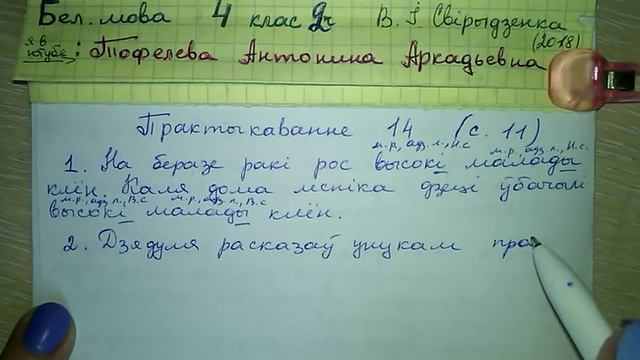 Бел. мова 4 клас 2ч В. І. Свірыдзенка
я в ютубе: Тофелева Антонина Аркадьевна (2018)
Практыкаванне 14 (с. 11)
м.р., адз.л., Н.с м.р., адз.л., Н.с.
1. На беразе ракі рос высокі малады
клён. Каля дома лесніка дзеці ўбачылі
м.р., адз.л., В.с м.р., адз.л., В.с
высокі малады клён.
2. Дзядуля расказаў унукам пра